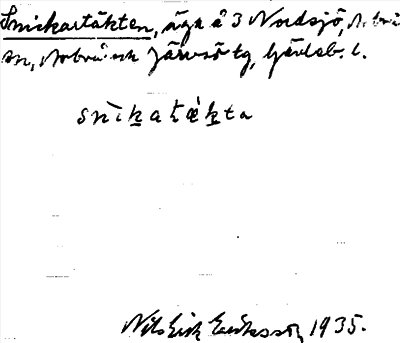 Snickartäkten, äga å 3 Nordsjö, Arbrå
sn, Arbrå och Järvsö tg, Gävleb. l.
snìk̲at̲ǽk̲ta
Nils Erik Eriksson, 1935.